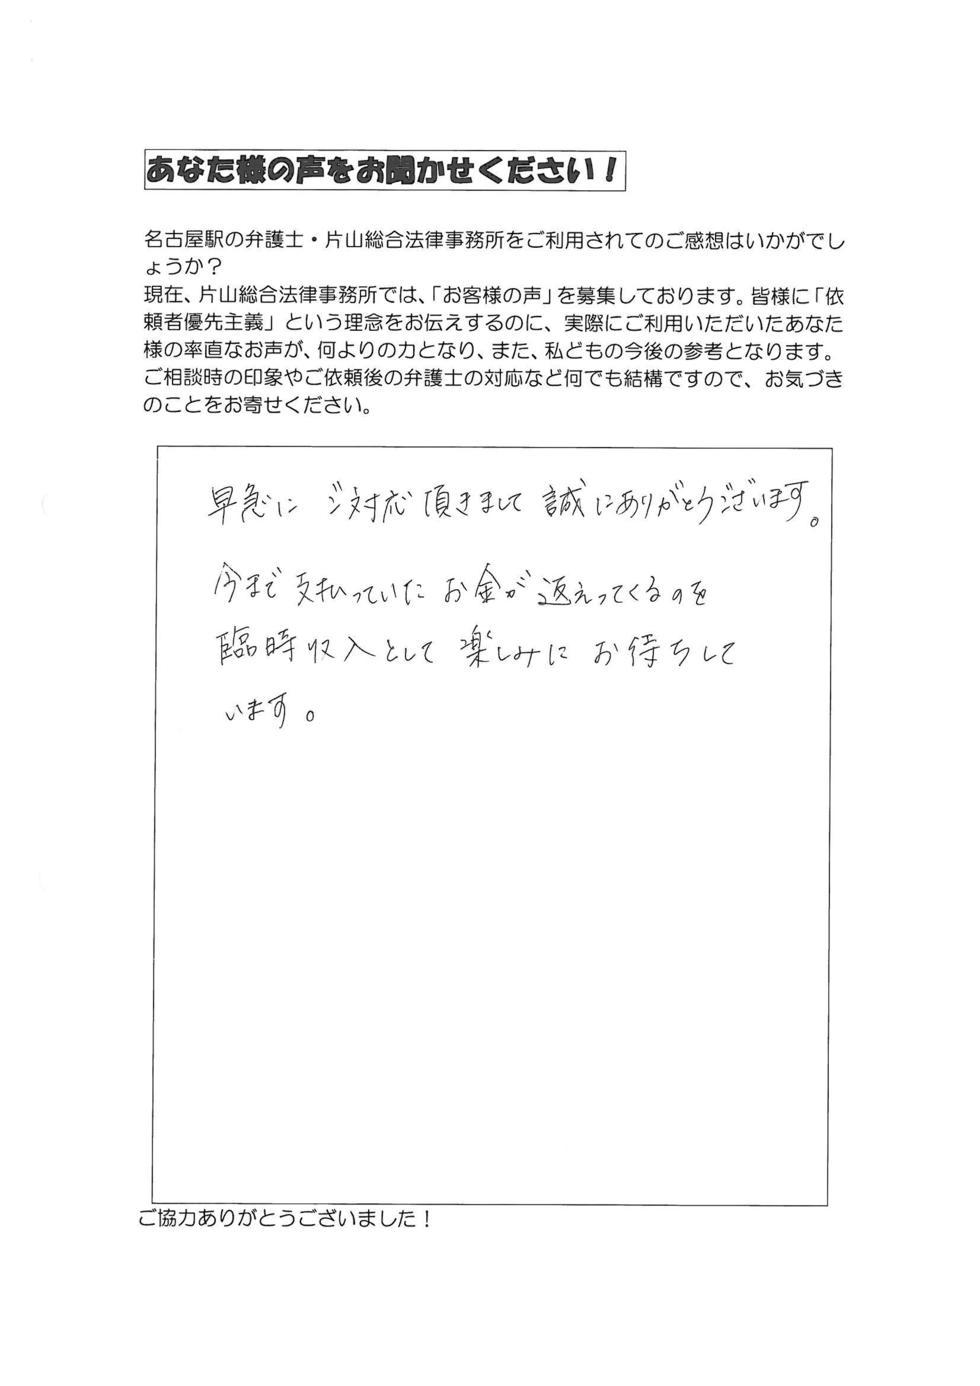 あなた様の声をお聞かせください！
名古屋駅の弁護士・片山総合法律事務所をご利用されてのご感想はいかがでし
ょうか？
現在、片山総合法律事務所では、「お客様の声」を募集しております。皆様に「依
頼者優先主義」という理念をお伝えするのに、実際にご利用いただいたあなた
様の率直なお声が、何よりの力となり、また、私どもの今後の参考となります。
ご相談時の印象やご依頼後の弁護士の対応など何でも結構ですので、お気づき
のことをお寄せください。
早急に ご対応頂きまして 誠にありがとうございます。
今まで支払っていた お金が返えってくるのを
臨時収入として 楽しみに お待ちして
います。
ご協力ありがとうございました！